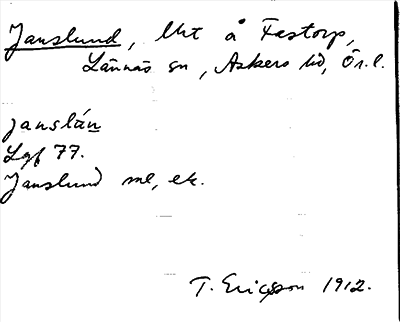 Janslund, lht å Fastorp,
Lännäs sn, Askers hd, Ör.l.
janslán
Lgf 77.
Janslund me, ek.
T. Ericsson 1912.